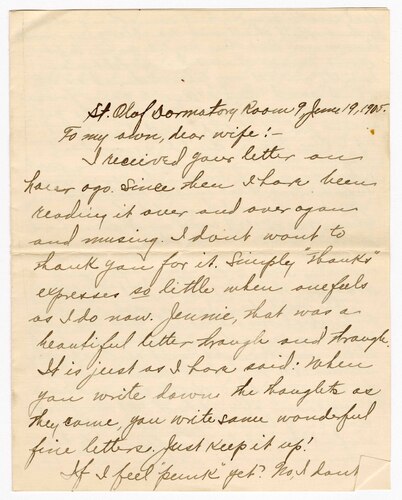 St. Olaf Dormatory Room 9, June 19, 1905.
To my own, dear wife:-
I received your letter an
hour ago. Since then I have been
reading it over and over again
and musing. I dont want to
thank you for it. Simply "thanks"
expresses so little when one feels
as I do now. Jennie, that was a
beautiful letter through and through.
It is just as I have said: When
you write down the thoughts as
they come, you write some wonderful
fine letters. Just keep it up!
If I feel "punk" yet? No, I dont